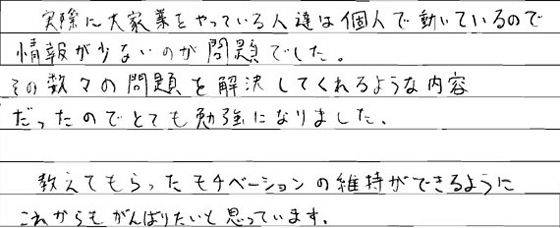 実際に大家業をやっている人達は個人で動いているので
情報が少ないのが問題でした。
その数々の問題を解決してくれるような内容
だったのでとても勉強になりました。
教えてもらったモチベーションの維持ができるように
これからもがんばりたいと思っています。